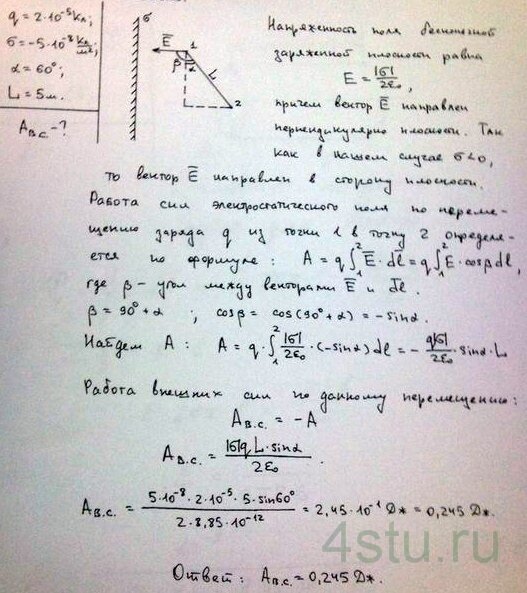 q = 2·10⁻⁵ Кл;
σ = -5·10⁻⁸ Кл/м²;
α = 60°;
L = 5 м.
Aв.с. - ?
σ
E̅
1
β α
L
2
Напряженность поля бесконечной
заряженной плоскости равна
E = |σ|/2ε₀,
причем вектор E̅ направлен
перпендикулярно плоскости. Так
как в нашем случае σ<0,
то вектор E̅ направлен в сторону плоскости.
Работа сил электростатического поля по переме-
щению заряда q из точки 1 в точку 2 определя-
ется по формуле: A = q∫₁² E̅·dl̅ = q∫₁² E·cosβdl,
где β - угол между векторами E̅ и dl̅.
β = 90° + α ; cosβ = cos(90° + α) = -sinα.
Найдем A: A = q·∫₁² |σ|/2ε₀·(-sinα)dl = - q|σ|/2ε₀·sinα·L
Работа внешних сил по данному перемещению:
Aв.с. = -A
Aв.с. = |σ|qL·sinα/2ε₀.
Aв.с. = 5·10⁻⁸·2·10⁻⁵·5·sin60°/2·8,85·10⁻¹² = 2,45·10⁻¹ Дж = 0,245 Дж.
4stu.ru
Ответ: Aв.с. = 0,245 Дж.